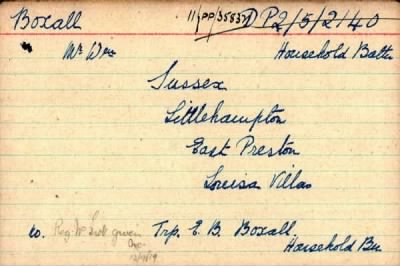 Boxall 11/PP/35837 DP2/5/2/40
Mr Wm Household Battn
Sussex
Littlehampton
East Preston
Louisa Villas
co. Reg. No given Trp. E. B. Boxall.
Household Bn